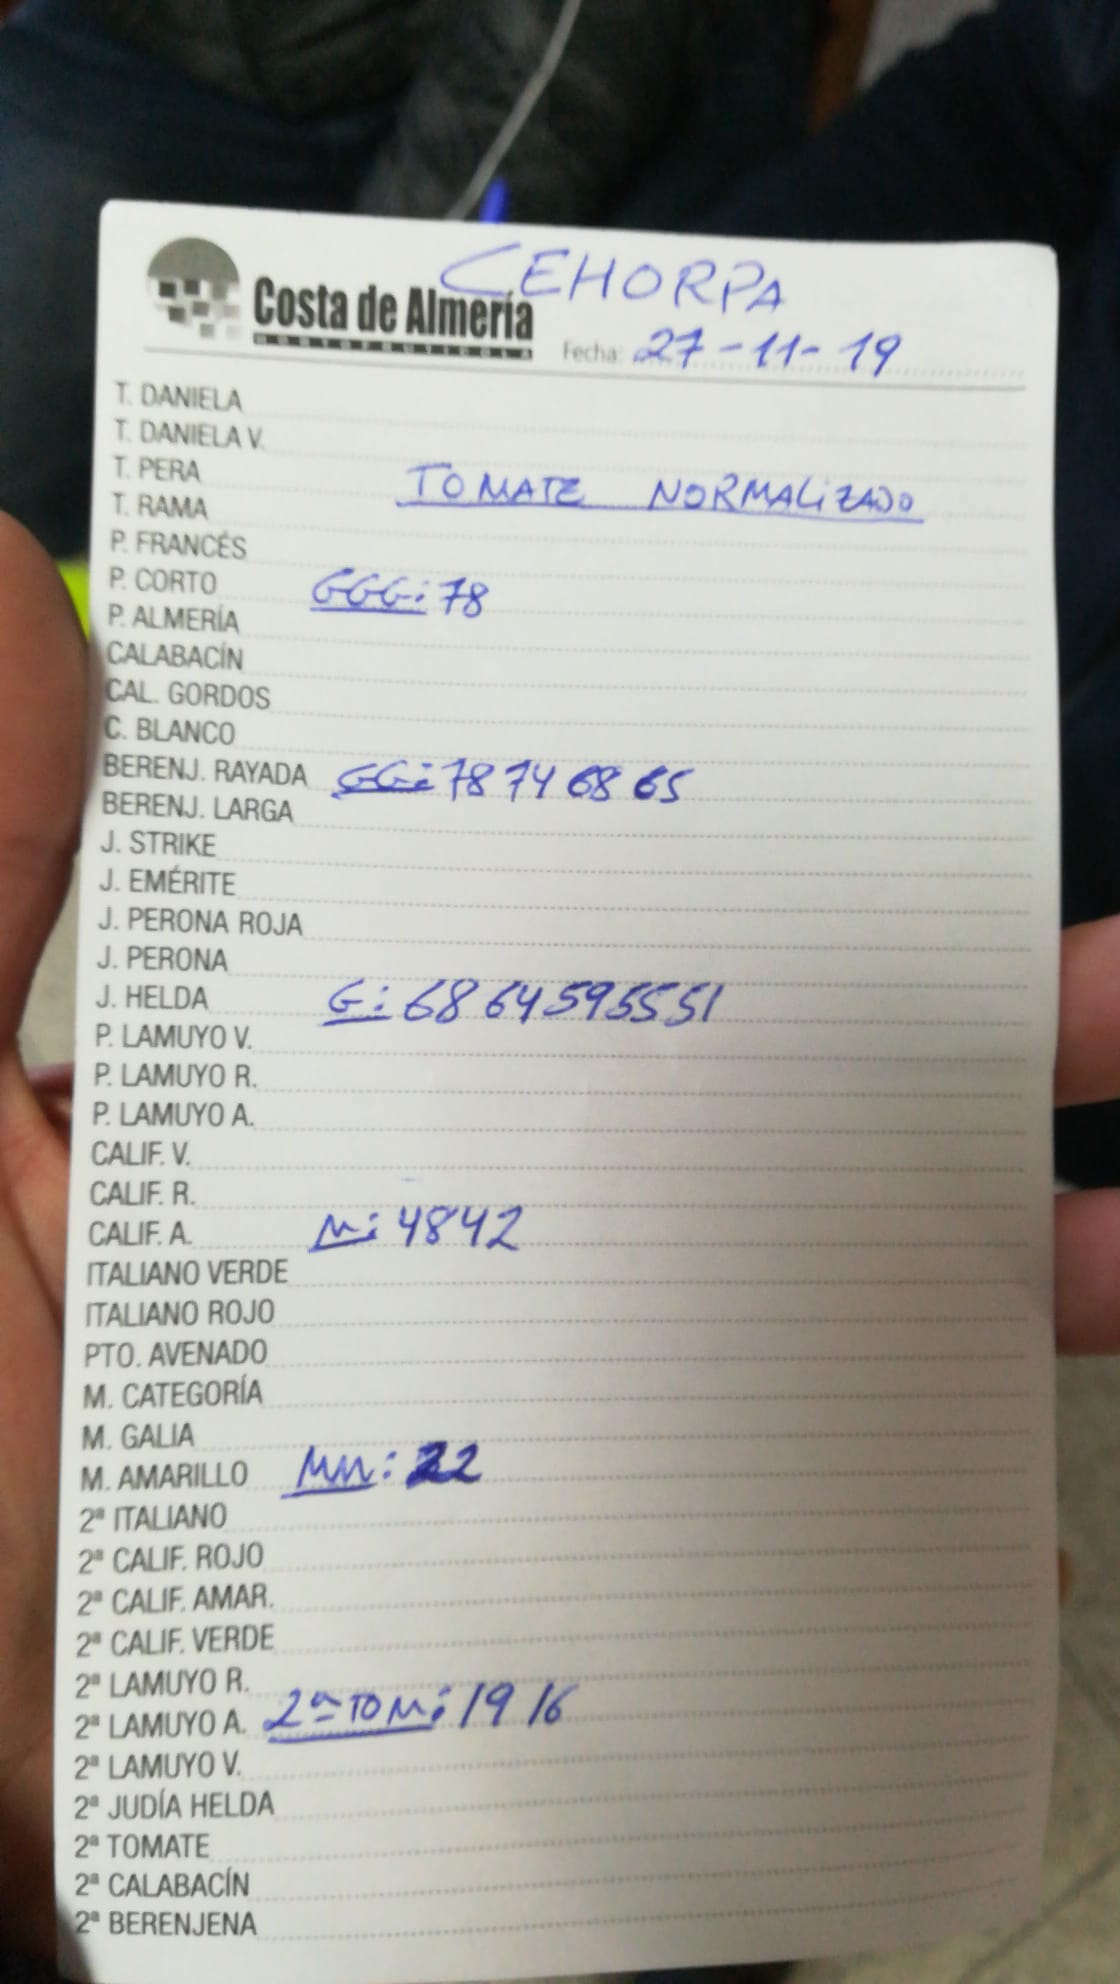 CEHORPA
Costa de Almería
HORTOFRUTÍCOLA
Fecha: 27-11-19
T. DANIELA
T. DANIELA V.
T. PERA
TOMATE NORMALIZADO
T. RAMA
P. FRANCÉS
P. CORTO
GGG: 78
P. ALMERÍA
CALABACÍN
CAL. GORDOS
C. BLANCO
BERENJ. RAYADA GG: 78 74 68 65
BERENJ. LARGA
J. STRIKE
J. EMÉRITE
J. PERONA ROJA
J. PERONA
J. HELDA G: 68 64 59 55 51
P. LAMUYO V.
P. LAMUYO R.
P. LAMUYO A.
CALIF. V.
CALIF. R.
CALIF. A. M: 48 42
ITALIANO VERDE
ITALIANO ROJO
PTO. AVENADO
M. CATEGORÍA
M. GALIA
M. AMARILLO MM: 22
2ª ITALIANO
2ª CALIF. ROJO
2ª CALIF. AMAR.
2ª CALIF. VERDE
2ª LAMUYO R.
2ª LAMUYO A. 2ª TOM: 19 16
2ª LAMUYO V.
2ª JUDÍA HELDA
2ª TOMATE
2ª CALABACÍN
2ª BERENJENA